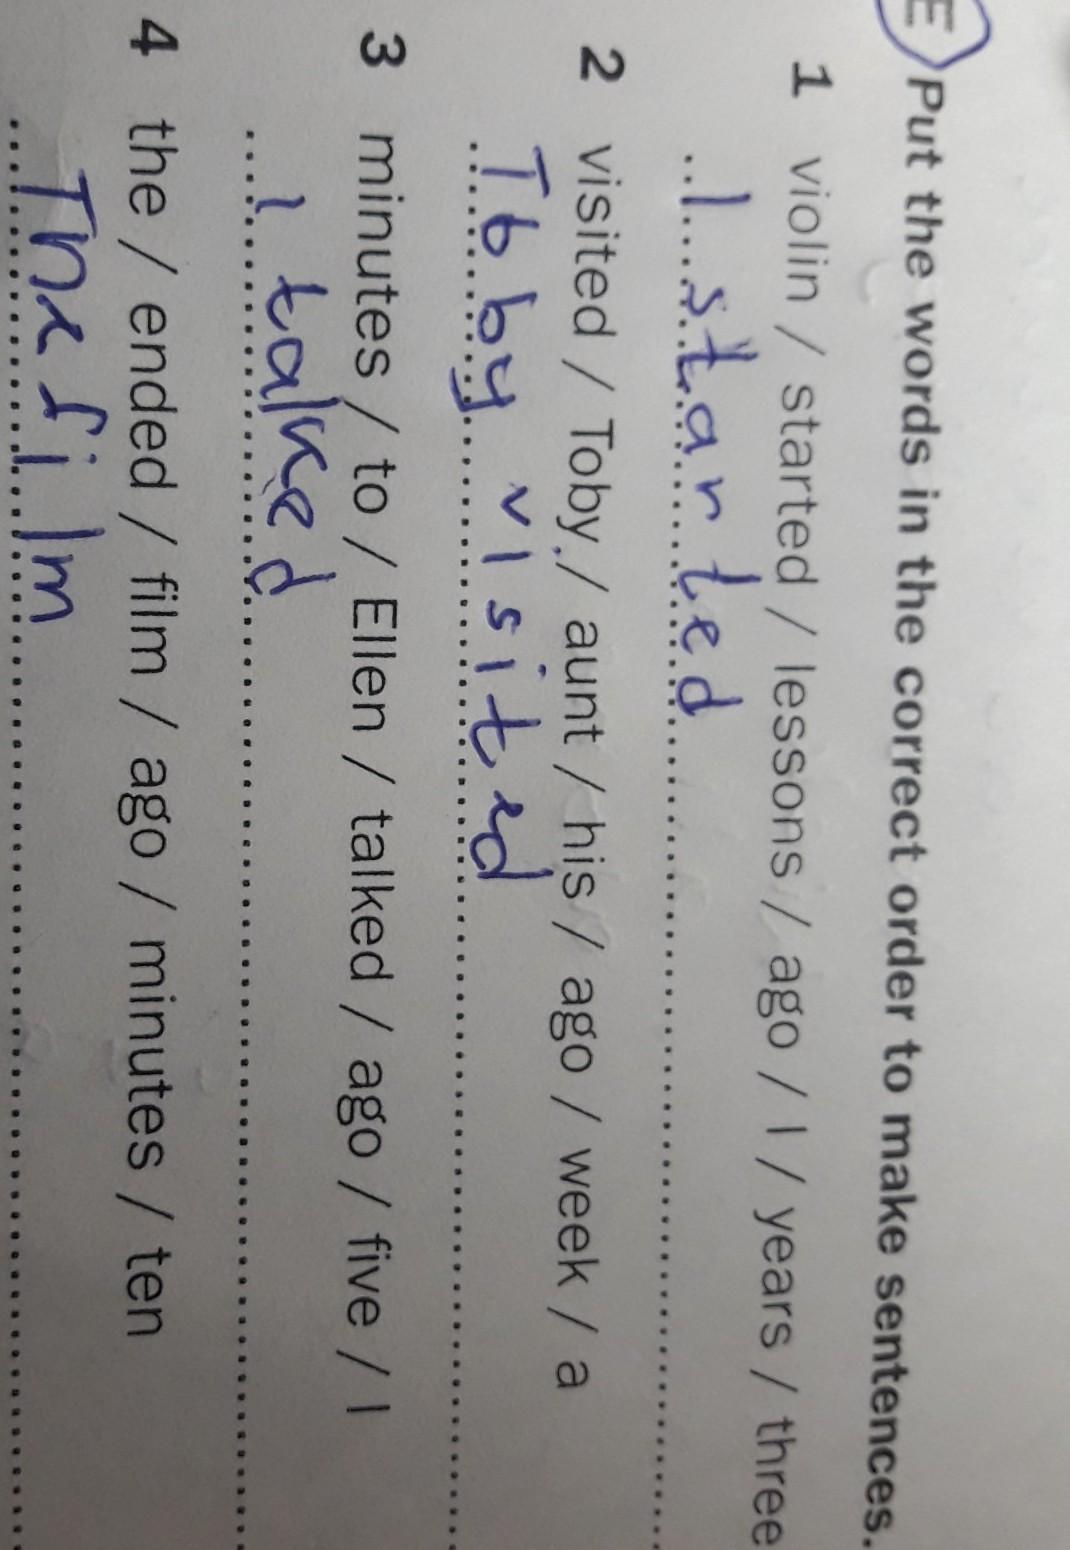 E Put the words in the correct order to make sentences.
1 violin / started / lessons / ago / I / years / three
I started
2 visited / Toby / aunt / his / ago / week / a
Toby visited
3 minutes / to / Ellen / talked / ago / five / I
I talked
4 the / ended / film / ago / minutes / ten
The film